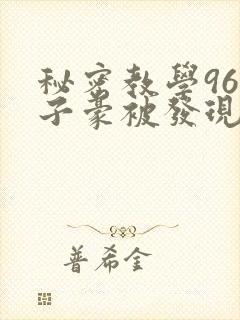 秘密教學96
子豪被發現
普希金